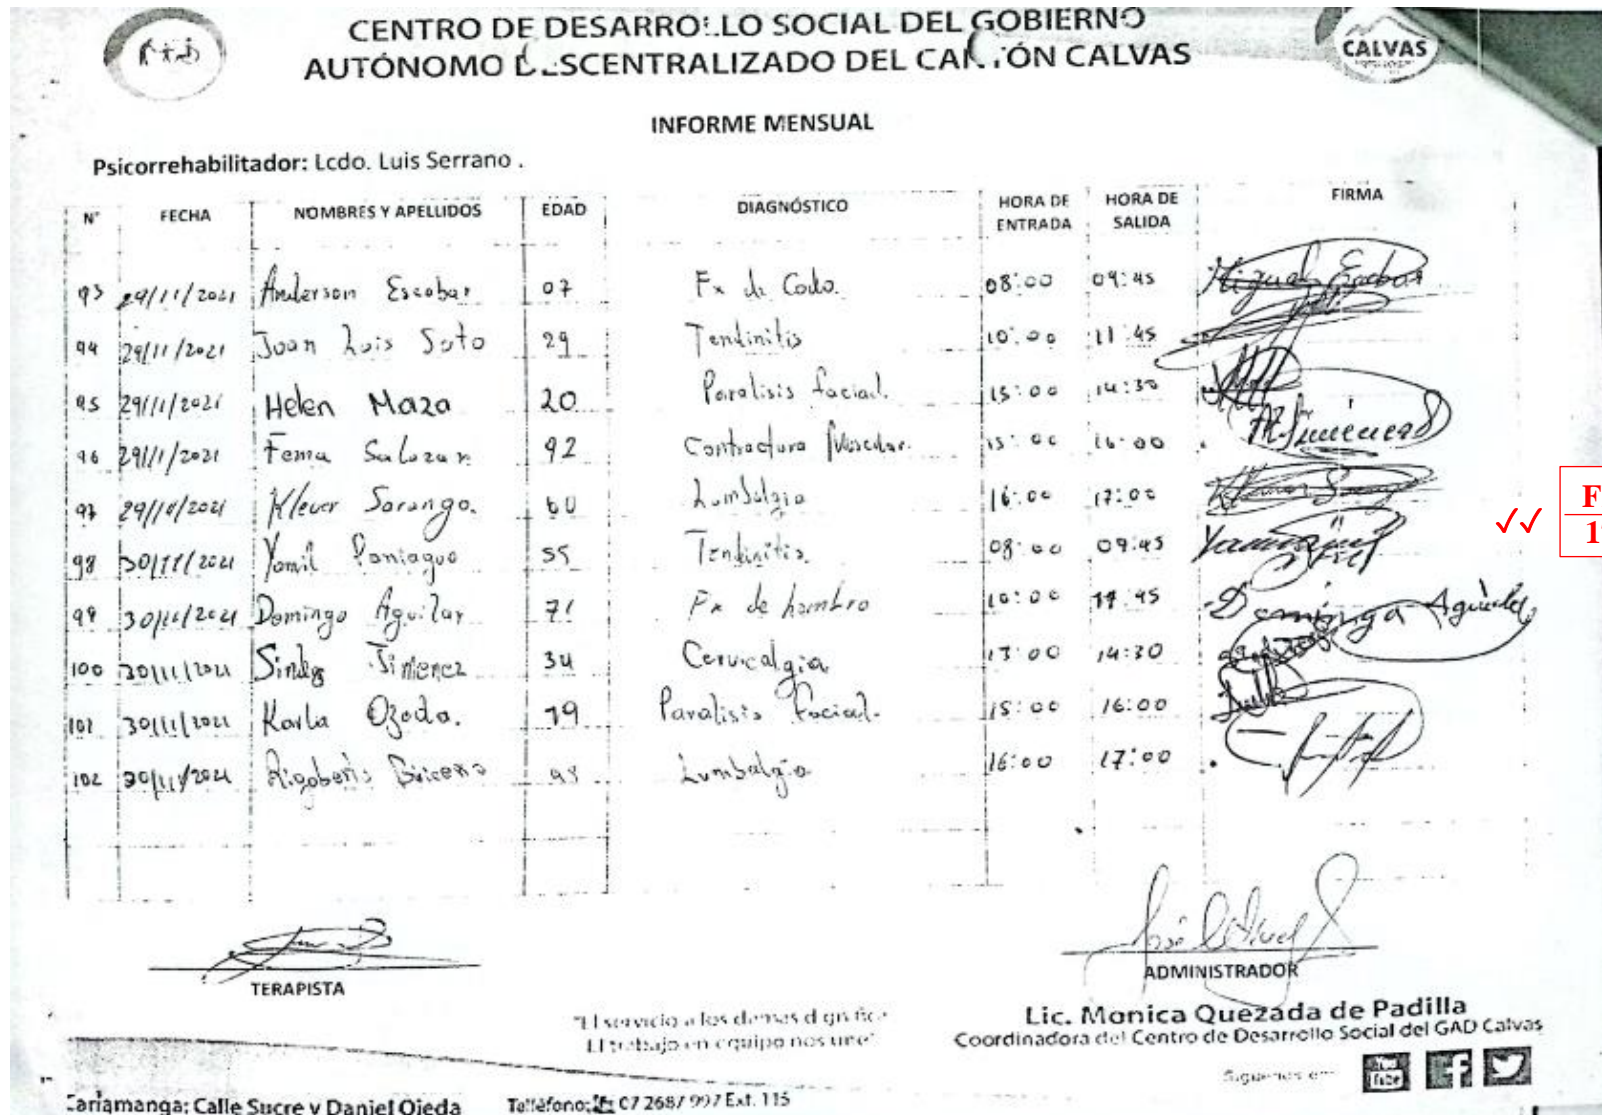 CENTRO DE DESARROLLO SOCIAL DEL GOBIERNO
AUTÓNOMO DESCENTRALIZADO DEL CANTÓN CALVAS
CALVAS
INFORME MENSUAL
Psicorrehabilitador: Lcdo. Luis Serrano .
N° FECHA NOMBRES Y APELLIDOS EDAD DIAGNÓSTICO HORA DE ENTRADA HORA DE SALIDA FIRMA
93 29/11/2021 Anderson Escobar 07 Fx de Codo. 08:00 09:45 Miguel Escobar
94 29/11/2021 Juan Luis Soto 29 Tendinitis 10:00 11:45
95 29/11/2021 Helen Maza 20 Paralisis facial. 15:00 14:30
96 29/11/2021 Salazar 92 Contractura Muscular. 15:00 16:00
97 29/11/2021 Klever Sarango. 60 Lumbalgia 16:00 17:00
98 30/11/2021 Yamil Paniagua 55 Tendinitis. 08:00 09:45
99 30/11/2021 Domingo Aguilar 71 Fx de hombro 10:00 11:45 Dominga Aguila
100 30/11/2021 Jimenez 34 Cervicalgia 13:00 14:30
101 30/11/2021 Karla Ojeda. 19 Paralisis Facial. 15:00 16:00
102 30/11/2021 Rigoberto Briceño 48 Lumbalgia 16:00 17:00
F
1
TERAPISTA
ADMINISTRADOR
Lic. Monica Quezada de Padilla
Coordinadora del Centro de Desarrollo Social del GAD Calvas
"El servicio a los demas dignifica
El trabajo en equipo nos une"
Siguenos en:
You Tube
Cariamanga: Calle Sucre y Daniel Ojeda Teléfono: 07 2687 997 Ext. 115